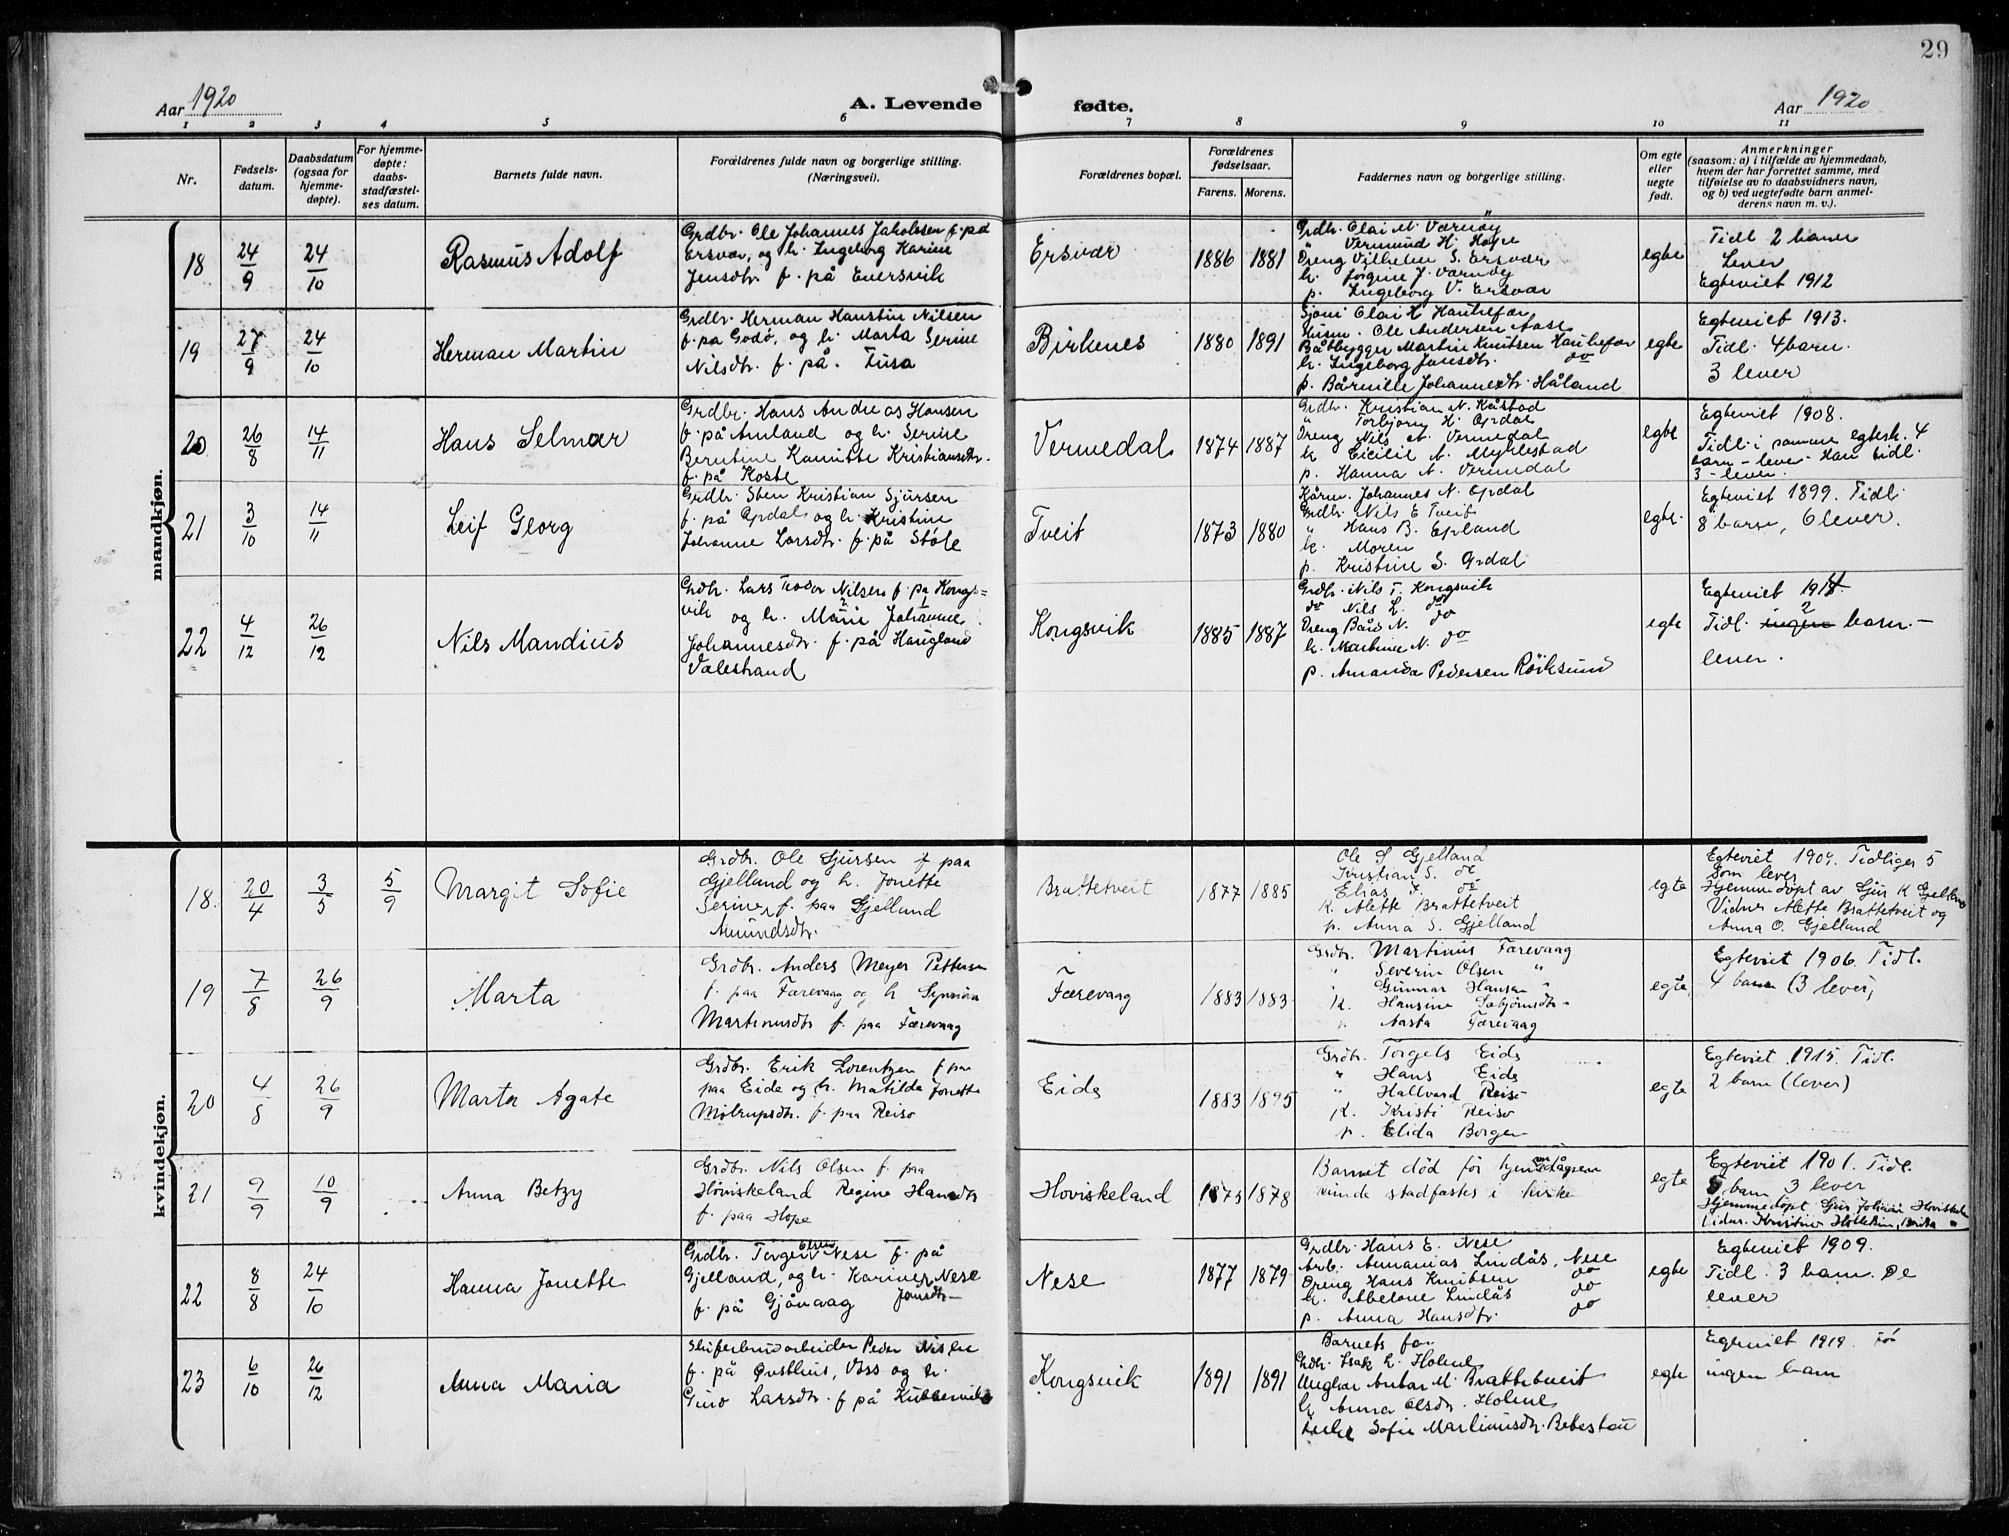 29
Aar 1920
A. Levende fødte.
Aar 1920
1 2 3 4 5 6 7 8 9 10 11
Nr.
Fødsels-
datum.
Daabsdatum
(ogsaa for
hjemme-
døpte).
For hjemme-
døpte:
daabs-
stadfæstel-
ses datum.
Barnets fulde navn.
Forældrenes fulde navn og borgerlige stilling.
(Næringsvei).
Forældrenes bopæl.
Forældrenes
fødselsaar.
Farens. Morens.
Faddernes navn og borgerlige stilling.
Om egte
eller
uegte
født.
Anmerkninger
(saasom: a) i tilfælde av hjemmedaab,
hvem der har forrettet samme, med
tilføielse av to daabsvidners navn,
og b) ved uegtefødte barn anmel-
derens navn m. v.).
mandkjøn.
18
24/9
24/10
Rasmus Adolf
Grdbr. Ole Johannes Jakobsen f. på
Ersvær, og h. Ingeborg Karine
Jensdtr. f. på Eversvik
Ersvær
1886 1881
Grdbr. Olai M. Værnøy
" Vermund H. Hope
Dreng Vilhelm S. Ersvær
k. Jørgine J. Værnøy
p. Ingeborg V. Ersvær
egte
Tidl 2 barn
Lever
Egteviet 1912
19
27/9
24/10
Herman Martin
Grdbr. Herman Hanstin Nilsen
f. på Godø, og h. Marta Serine
Nilsdtr. f. på. Tusa
Birkenes
1880 1891
Olai H Haukefær
Husm. Ole Andersen Aase
Båtbygger Martin Knutsen Haukefær
k. Ingeborg Jonsdtr. do
p. Johannesdtr. Håland
egte
Egteviet 1913.
Tidl. 4 barn.
3 lever
20
26/8
14/11
Hans Selmar
Grdbr. Hans Andreas Hansen
f. på Amland og h. Serine
Berntine Kristiansdtr.
f. på Koste
Vermedal
1874 1887
Grdbr. Kristian N. Kåstad
" Torbjørn H. Opdal
Dreng Nils A. Vermedal
k. Cicilie N. Myklestad
p. Hanna A. Vermedal
egte
Egteviet 1908.
Tidl. i samme egtesk. 4
barn - lever. Han tidl.
3 - lever.
21
3/10
14/11
Leif Georg
Grdbr. Sten Kristian Sjursen
f. på Opdal og h. Kristine
Johanne Larsdtr. f. på Støle
Tveit
1873 1880
Johannes N. Opdal
Grdbr. Nils E Tveit
" Hans B. Epland
k. Moren
p. Kristine S. Opdal
egte.
Egteviet 1899. Tidl.
8 barn, 6 lever.
22
4/12
26/12
Nils Mandius
Grdbr. Lars Teodor Nilsen f. på Kongs=
vik og h. Marie Johanne
Johannesdtr. f. på Haugland
Valestrand
Kongsvik
1885 1887
Grdbr. Nils T. Kongsvik
do Nils L. do
Dreng Bård N. do
k. Martine N. do
p. Amanda Pedersen Røiksund
egte
Egteviet 1914.
Tidl. ingen 2 barn. -
lever.
kvindekjøn.
18.
20/4
3/5
5/9
Margit Sofie
Grdbr. Ole Sjursen f paa
Gjelland og h. Jonette
Serine, f. paa Gjelland
Amundsdtr.
Brattetveit
1877 1885
Ole S Gjelland
Kristian S. do
Elias J. do
k. Alette Brattetveit
p. Anna S. Gjelland
egte
Egteviet 1909. Tidligere 5
som lever
Hjemmedøpt av Sjur K Gjelland
Vidner Alette Brattetveit og
Anna O. Gjelland
19
7/8
26/9
Marta
Grdbr. Anders Meyer Pettersen
f. paa Færevaag og h
Martinusdtr f. paa Færevaag
Færevaag
1883 1883
Grdbr. Martinius Færevaag
" Severin Olsen "
" Gunnar Hansen "
k. Hansine
p. Aasta Færevaag
egte
Egteviet 1906. Tidl.
4 barn (3 lever)
20
4/8
26/9
Marta Agate
Grdbr. Erik Lorentzen f paa
paa Eide og h. Matilda Jonette
Møtrupsdtr. f. paa Reisø
Eide
1883 1895
Grdbr. Torgels Eide
" Hans Eide
" Hallvard Reisø
k. Kristi Reisø
p. Elida Borgen
egte
Egteviet 1915. Tidl.
2 barn (lever)
21
9/9
10/9
Anna Betzy
Grdbr. Nils Olsen f. paa
Høviskeland Regine Hansdtr
f. paa Hope
Hoviskeland
1875 1878
Barnet død før hjemmedåpen
kunde stadfæstes i kirke
egte
Egteviet 1901. Tidl.
5 barn 3 lever
Hjemmedøpt
22
8/8
24/10
Hanna Jonette
Grdbr. Torger Olsen Nese f. på
Gjelland, og h. Karine Nese
f. på Gjønvaag Jonsdtr
Nese
1877 1879
Grdbr. Hans E. Nese
Arb. Ananias Lindås, Nese
Dreng Hans Knutsen do
k. Abelone Lindås do
p. Anna Hansdtr. do
egte
Egteviet 1909.
Tidl. 3 barn. De
lever
23
6/10
26/12
Anna Maria
Peder Nilsen
f. på Gusthus, Voss og h.
Guro Larsdtr. f på
Kongsvik
1891 1891
Barnets far
Grdbr. Isak L. Holme
Ungkar Anton M. Brattetveit
k. Anna Olsdtr. Holme
Sofie Martinusdtr.
egte
Egteviet 1919. Før
ingen barn